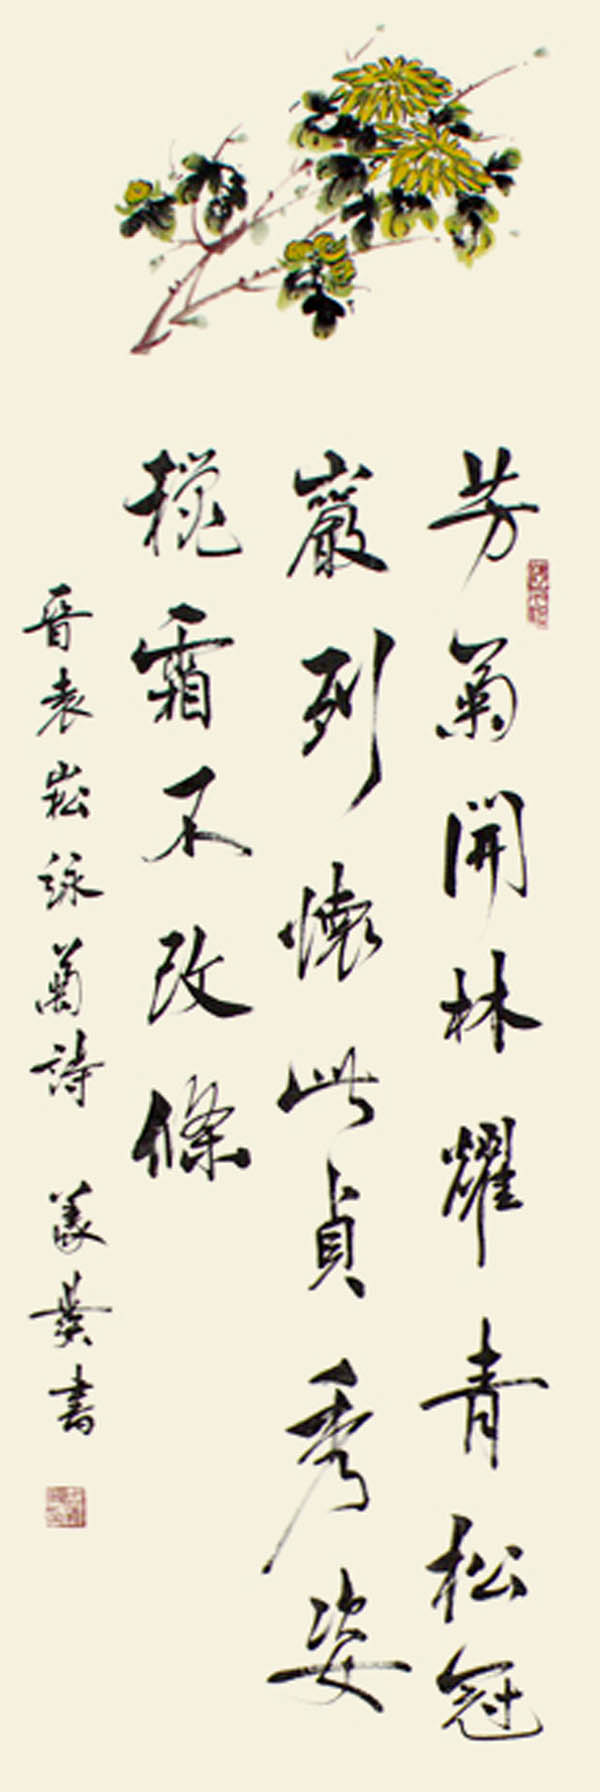 芳菊開林耀青松冠
巖列懷此貞秀姿
穐霜不改條
晉袁崧詠菊詩 書